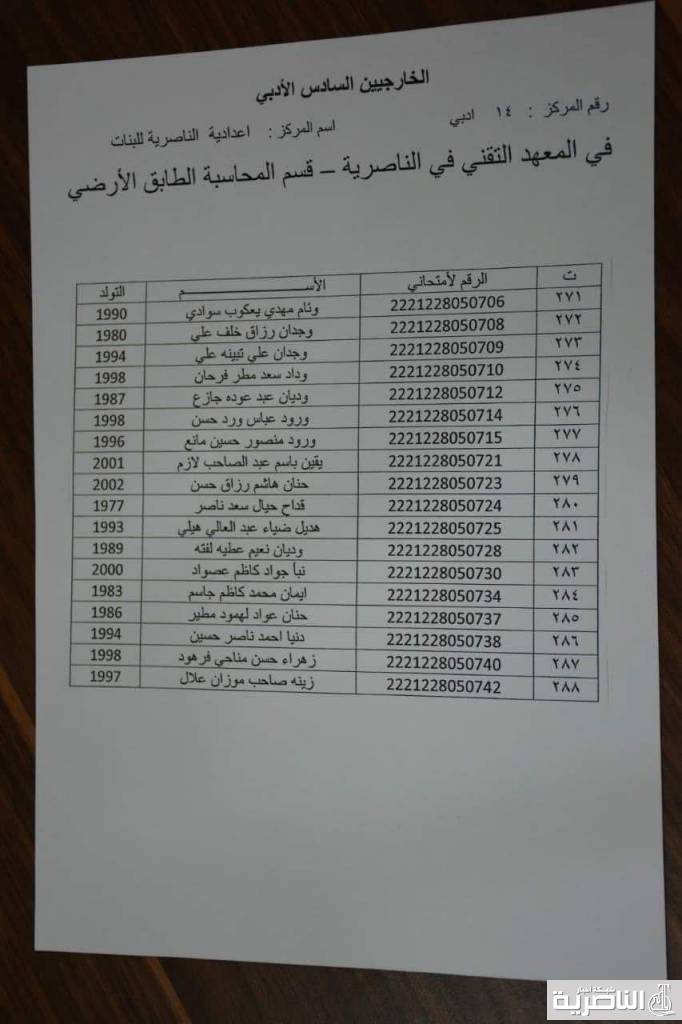 الخارجيين السادس الأدبي
رقم المركز : ١٤ ادبي اسم المركز : اعدادية الناصرية للبنات
في المعهد التقني في الناصرية – قسم المحاسبة الطابق الأرضي
ت الرقم لأمتحاني الأســـــــم التولد
٢٧١ 2221228050706 وئام مهدي يعكوب سوادي 1990
٢٧٢ 2221228050708 وجدان رزاق خلف علي 1980
٢٧٣ 2221228050709 وجدان علي تبينه علي 1994
٢٧٤ 2221228050710 وداد سعد مطر فرحان 1998
٢٧٥ 2221228050712 وديان عبد عوده جازع 1987
٢٧٦ 2221228050714 ورود عباس ورد حسن 1998
٢٧٧ 2221228050715 ورود منصور حسين مانع 1996
٢٧٨ 2221228050721 يقين باسم عبد الصاحب لازم 2001
٢٧٩ 2221228050723 حنان هاشم رزاق حسن 2002
٢٨٠ 2221228050724 قداح حيال سعد ناصر 1977
٢٨١ 2221228050725 هديل ضياء عبد العالي هيلي 1993
٢٨٢ 2221228050728 وديان نعيم عطيه لفته 1989
٢٨٣ 2221228050730 نبأ جواد كاظم عصواد 2000
٢٨٤ 2221228050734 ايمان محمد كاظم جاسم 1983
٢٨٥ 2221228050737 حنان عواد لهمود مطير 1986
٢٨٦ 2221228050738 دنيا احمد ناصر حسين 1994
٢٨٧ 2221228050740 زهراء حسن مناحي فرهود 1998
٢٨٨ 2221228050742 زينه صاحب موزان علال 1997
شبكة أخبار
الناصرية